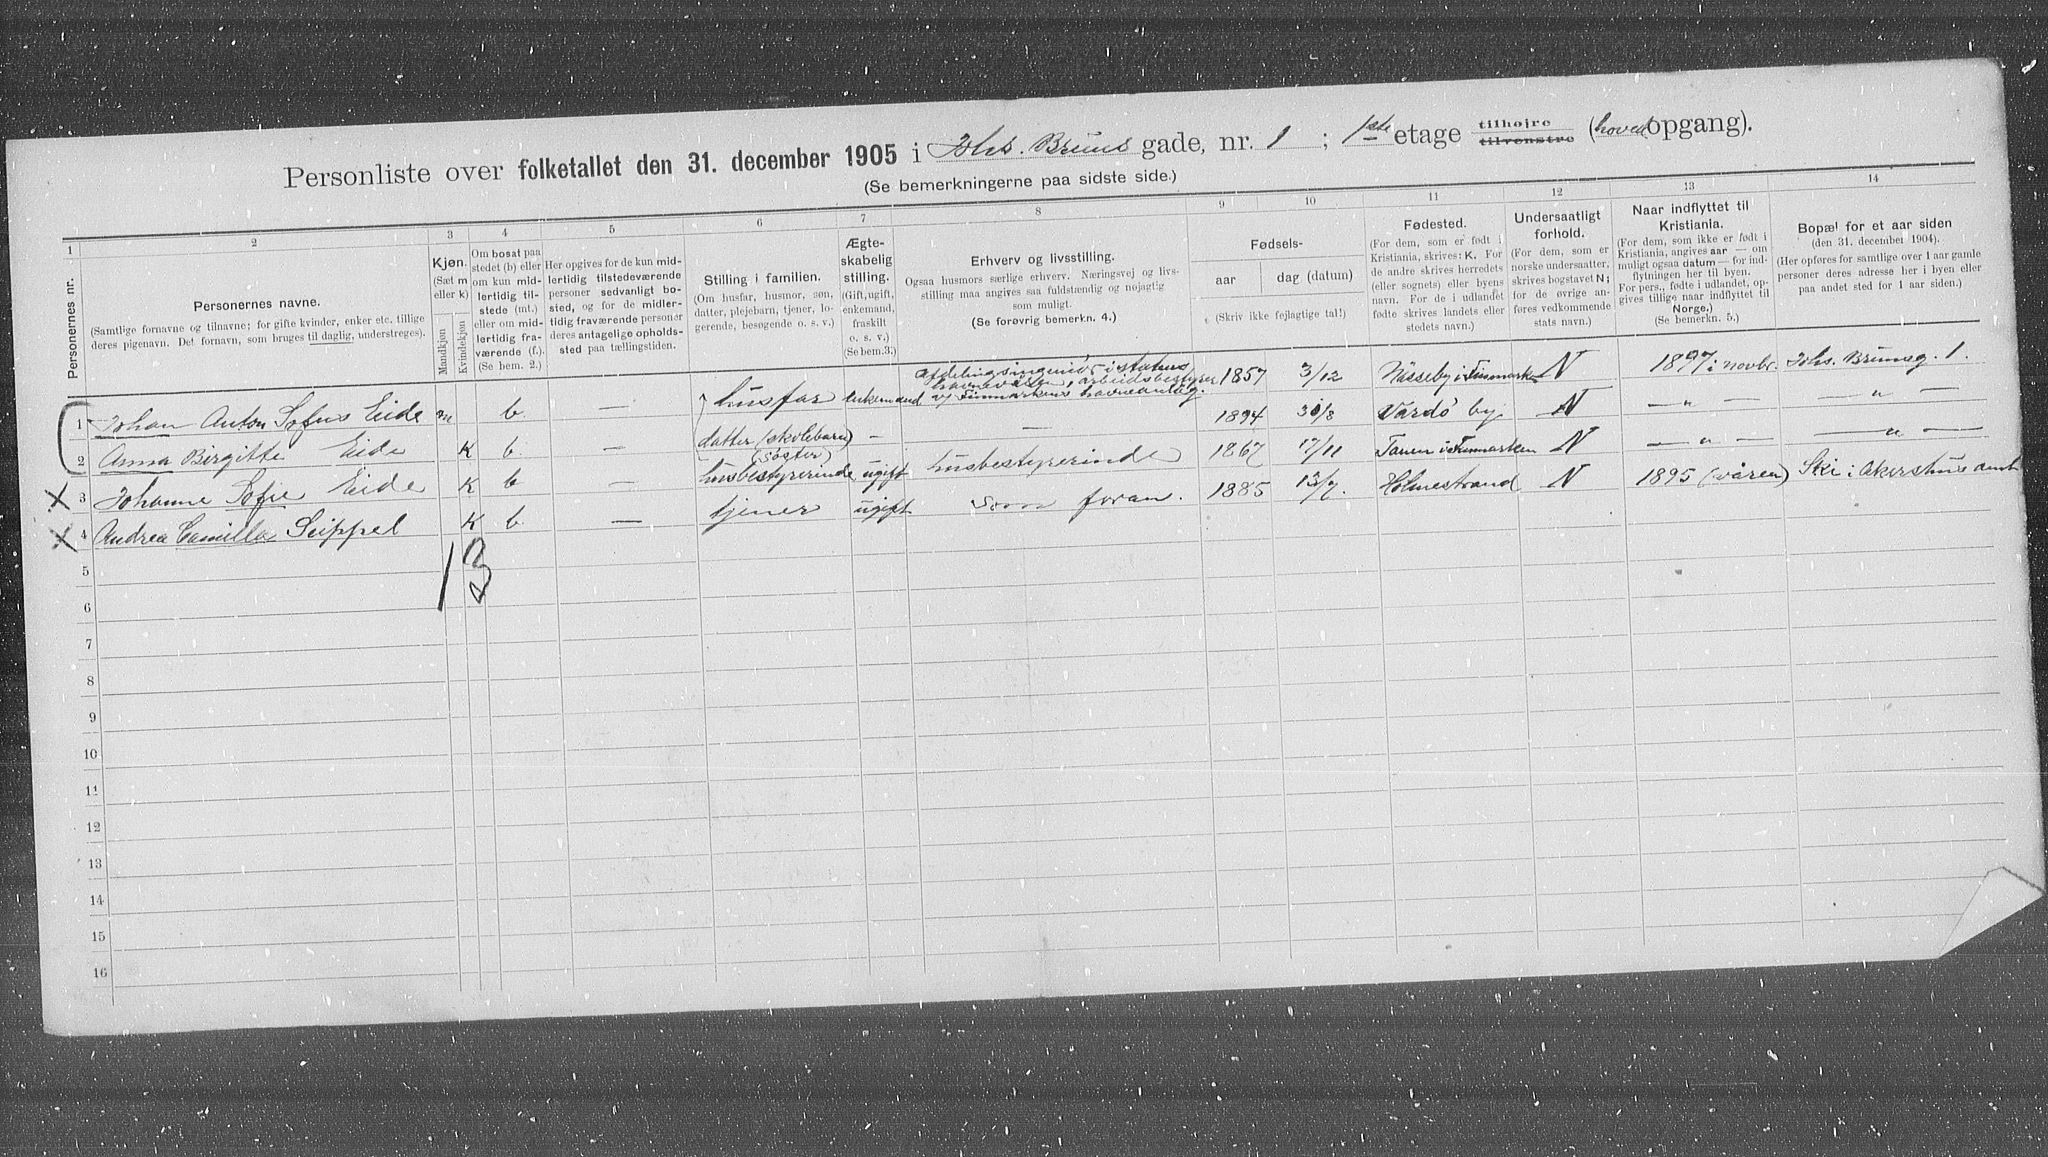 Personliste over folketallet den 31. december 1905 i Johs. Bruns gade, nr. 1 ; 1ste etage tilhøjre tilvenstre (hovedopgang).
(Se bemerkningerne paa sidste side.)
1 2 3 4 5 6 7 8 9 10 11 12 13 14
Personernes nr.
Personernes navne.
(Samtlige fornavne og tilnavne; for gifte kvinder, enker etc. tillige deres pigenavn. Det fornavn, som bruges til daglig, understreges).
Kjøn.
(Sæt m eller k)
Mandkjøn
Kvindekjøn
Om bosat paa stedet (b) eller om kun midlertidig tilstede (mt.) eller om midlertidig fraværende (f.). (Se bem. 2.)
Her opgives for de kun midlertidig tilstedeværende personer sedvanligt bosted, og for de midlertidig fraværende personer deres antagelige opholdssted paa tællingstiden.
Stilling i familien.
(Om husfar, husmor, søn, datter, plejebarn, tjener, logerende, besøgende o. s. v.)
Ægteskabelig stilling.
(Gift, ugift, enkemand, fraskilt o. s. v.) (Se bem. 3.)
Erhverv og livsstilling.
Ogsaa husmors særlige erhverv. Næringsvej og livsstilling maa angives saa fuldstændig og nøjagtig som muligt.
(Se forøvrig bemerkn. 4.)
Fødsels-
aar dag (datum)
(Skriv ikke fejlagtige tal!)
Fødested.
(For dem, som er født i Kristiania, skrives: K. For de andre skrives herredets (eller sognets) eller byens navn. For de i udlandet fødte skrives landets eller stedets navn.)
Undersaatligt forhold.
(For dem, som er norske undersaatter, skrives bogstavet N; for de øvrige anføres vedkommende stats navn.)
Naar indflyttet til Kristiania.
(For dem, som ikke er født i Kristiania, angives aar — om muligt ogsaa datum — for indflytningen her til byen. For pers., fødte i udlandet, opgives tillige naar indflyttet til Norge.)
(Se bemerkn. 5.)
Bopæl for et aar siden
(den 31. december 1904).
(Her opføres for samtlige over 1 aar gamle personer deres adresse her i byen eller paa andet sted for 1 aar siden.)
1 Johan Anton Sofus Eide m b — husfar enkemand afdelingsingeniør i statens havnevæsen, arbeidsbestyrer v/ Finmarkens havneanlæg. 1857 3/12 Næsseby i Finmarken N 1897 i novbr. Johs. Brunsg. 1.
2 Anna Birgitte Eide K b — datter (skolebarn) — — 1894 30/8 Vardø by N — " — — " —
3 Johanne Sofie Eide K b — (søster) husbestyrerinde ugift husbestyrerinde 1867 17/11 Tanen i Finmarken N — " — — " —
4 Andrea Camilla Seippel K b — tjener ugift som foran. 1885 13/7. Holmestrand N 1895 (våren) Ski i Akershus amt
1 3
5
6
7
8
9
10
11
12
13
14
15
16